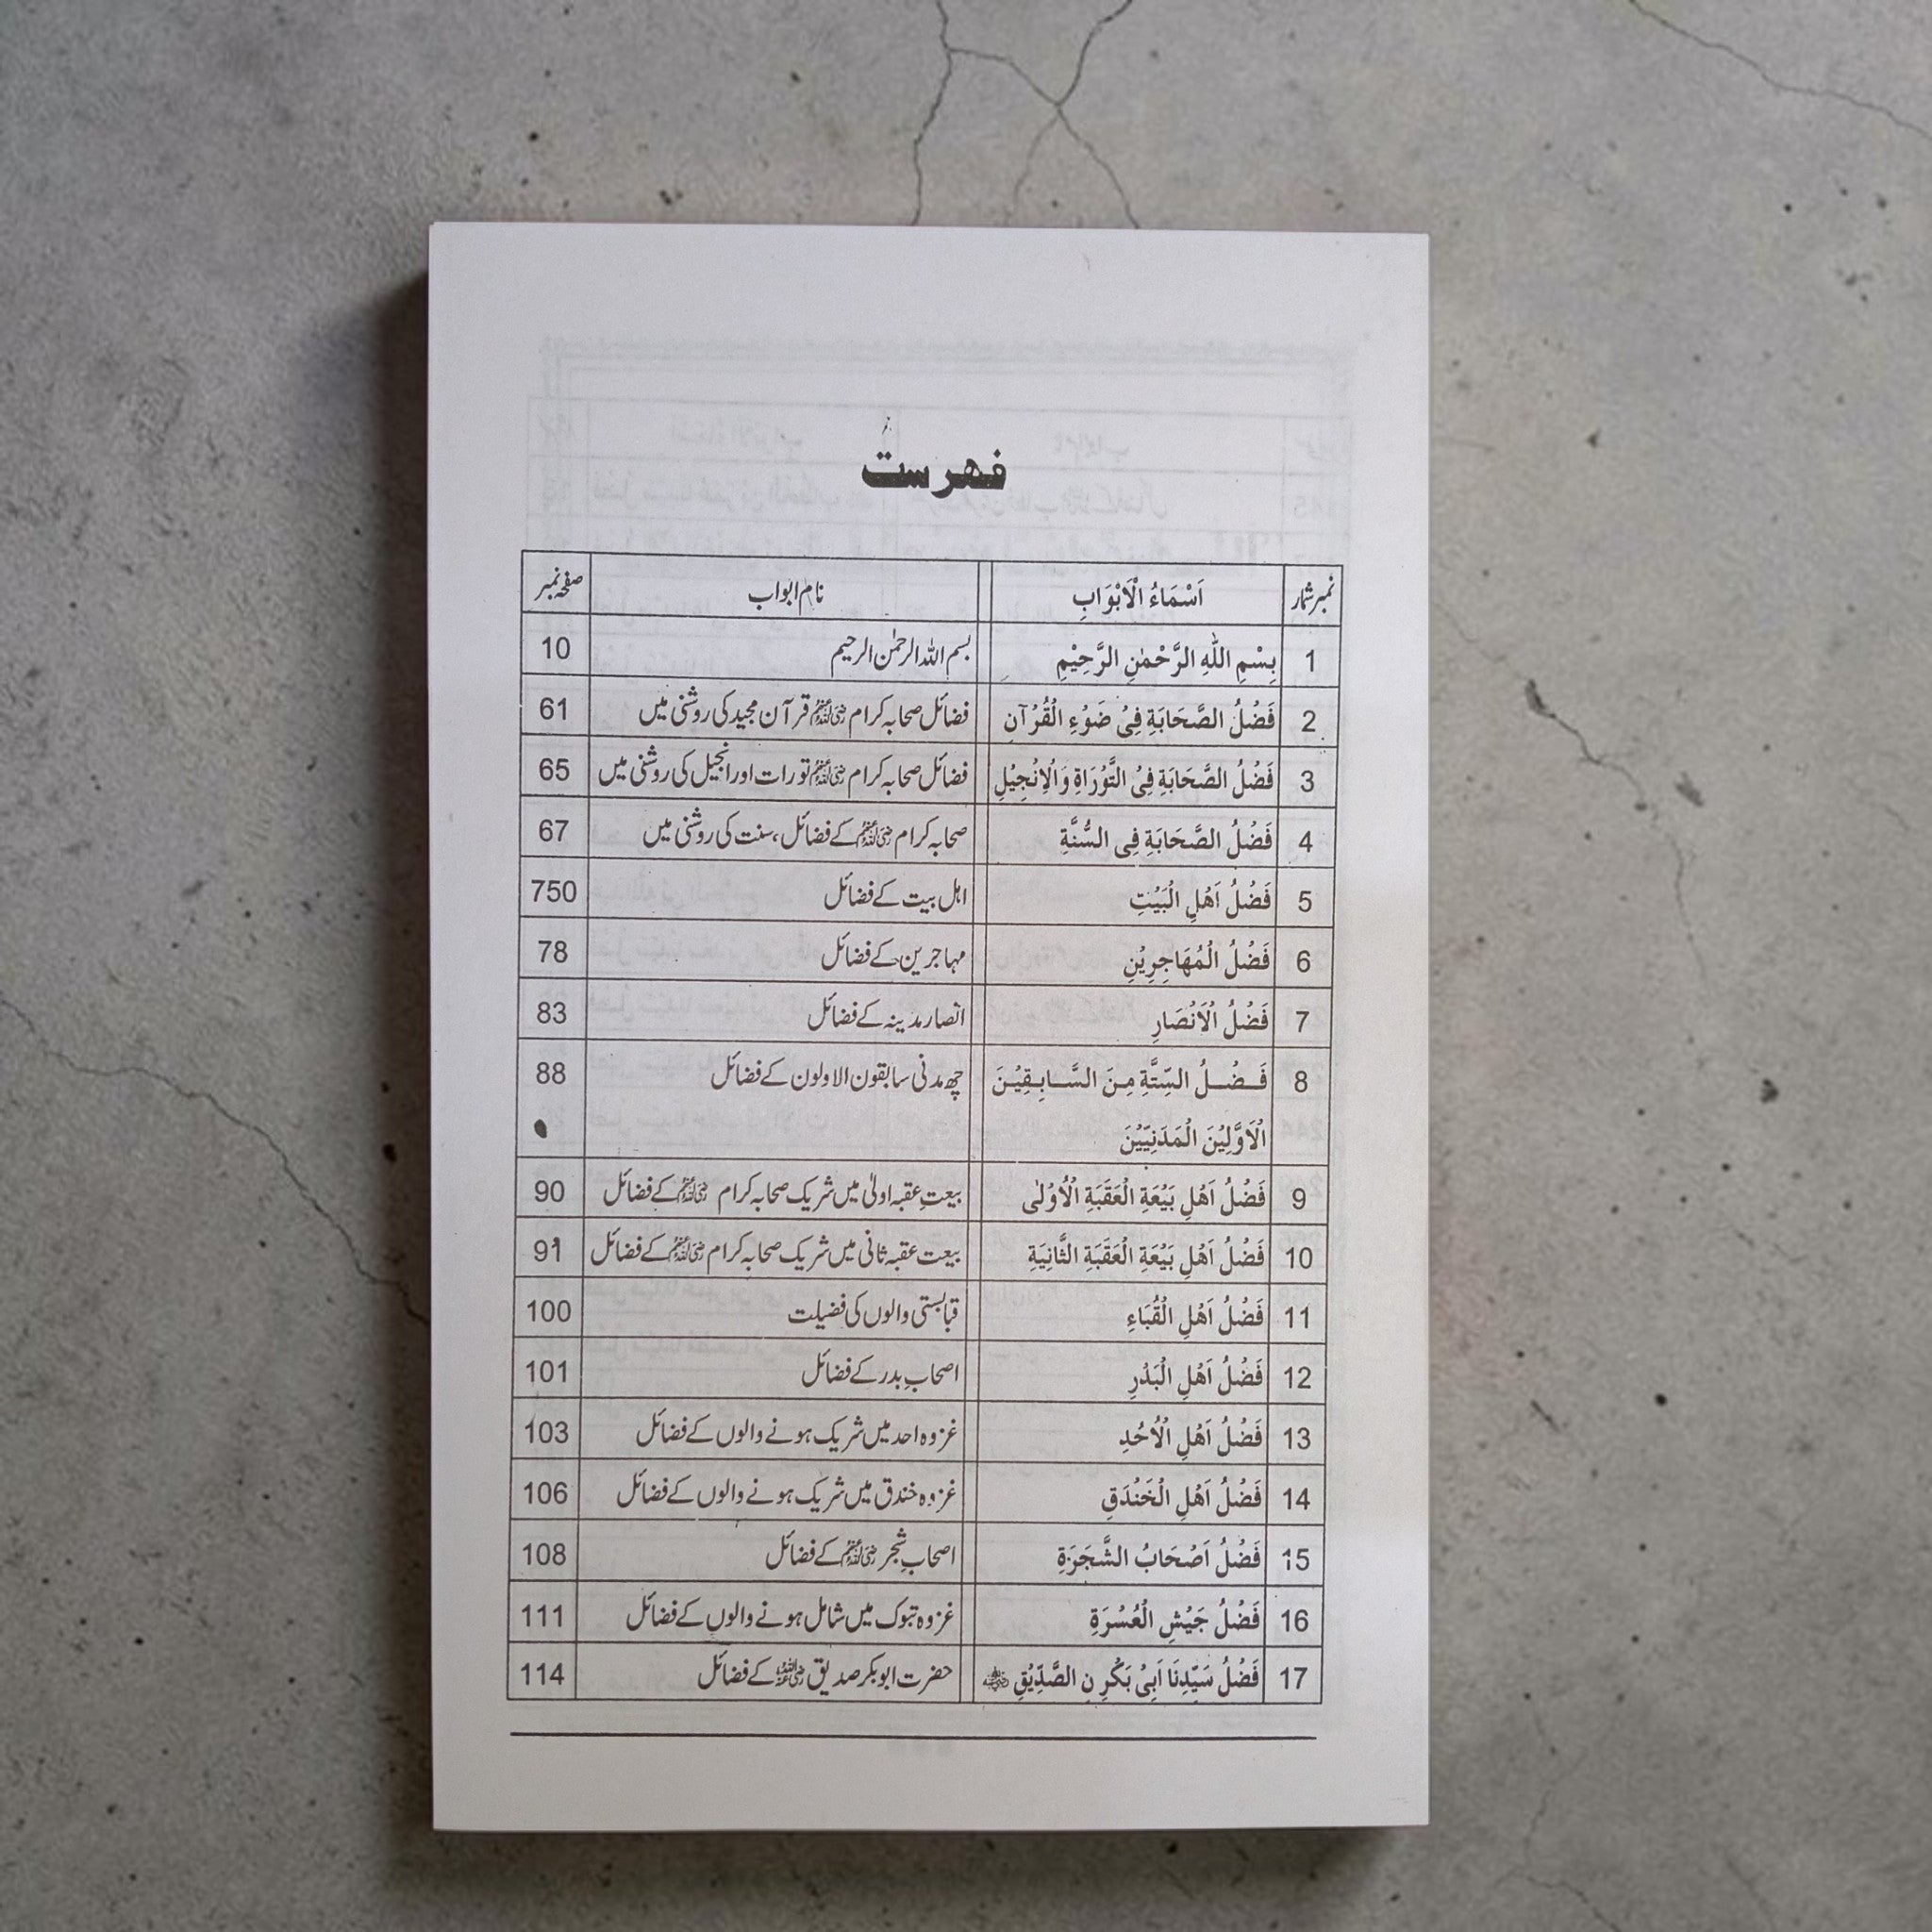 فہرست
نمبر شمار اَسْمَاءُ الْاَبْوَابِ نام ابواب صفحہ نمبر
1 بِسْمِ اللّٰهِ الرَّحْمٰنِ الرَّحِيْمِ بسم اللہ الرحمٰن الرحیم 10
2 فَضْلُ الصَّحَابَةِ فِیْ ضَوْءِ الْقُرْآنِ فضائل صحابہ کرام رضی اللہ عنہم قرآن مجید کی روشنی میں 61
3 فَضْلُ الصَّحَابَةِ فِیْ التَّوْرَاةِ وَالْاِنْجِيْلِ فضائل صحابہ کرام رضی اللہ عنہم تورات اور انجیل کی روشنی میں 65
4 فَضْلُ الصَّحَابَةِ فِی السُّنَّةِ صحابہ کرام رضی اللہ عنہم کے فضائل، سنت کی روشنی میں 67
5 فَضْلُ اَهْلِ الْبَيْتِ اہل بیت کے فضائل 750
6 فَضْلُ الْمُهَاجِرِيْنِ مہاجرین کے فضائل 78
7 فَضْلُ الْاَنْصَارِ انصار مدینہ کے فضائل 83
8 فَضْلُ السِّتَّةِ مِنَ السَّابِقِيْنَ چھ مدنی سابقون الاولون کے فضائل 88
الْاَوَّلِيْنَ الْمَدَنِيِّيْنَ
9 فَضْلُ اَهْلِ بَيْعَةِ الْعَقَبَةِ الْاُوْلٰی بیعتِ عقبہ اولیٰ میں شریک صحابہ کرام رضی اللہ عنہم کے فضائل 90
10 فَضْلُ اَهْلِ بَيْعَةِ الْعَقَبَةِ الثَّانِيَةِ بیعت عقبہ ثانی میں شریک صحابہ کرام رضی اللہ عنہم کے فضائل 91
11 فَضْلُ اَهْلِ الْقُبَاءِ قبا بستی والوں کی فضیلت 100
12 فَضْلُ اَهْلِ الْبَدْرِ اصحابِ بدر کے فضائل 101
13 فَضْلُ اَهْلِ الْاُحُدِ غزوہ احد میں شریک ہونے والوں کے فضائل 103
14 فَضْلُ اَهْلِ الْخَنْدَقِ غزوہ خندق میں شریک ہونے والوں کے فضائل 106
15 فَضْلُ اَصْحَابُ الشَّجَرَةِ اصحابِ شجر رضی اللہ عنہم کے فضائل 108
16 فَضْلُ جَيْشِ الْعُسْرَةِ غزوہ تبوک میں شامل ہونے والوں کے فضائل 111
17 فَضْلُ سَيِّدِنَا اَبِیْ بَكْرِ نِ الصَّدِّيْقِ رضی اللہ عنہ حضرت ابو بکر صدیق رضی اللہ عنہ کے فضائل 114